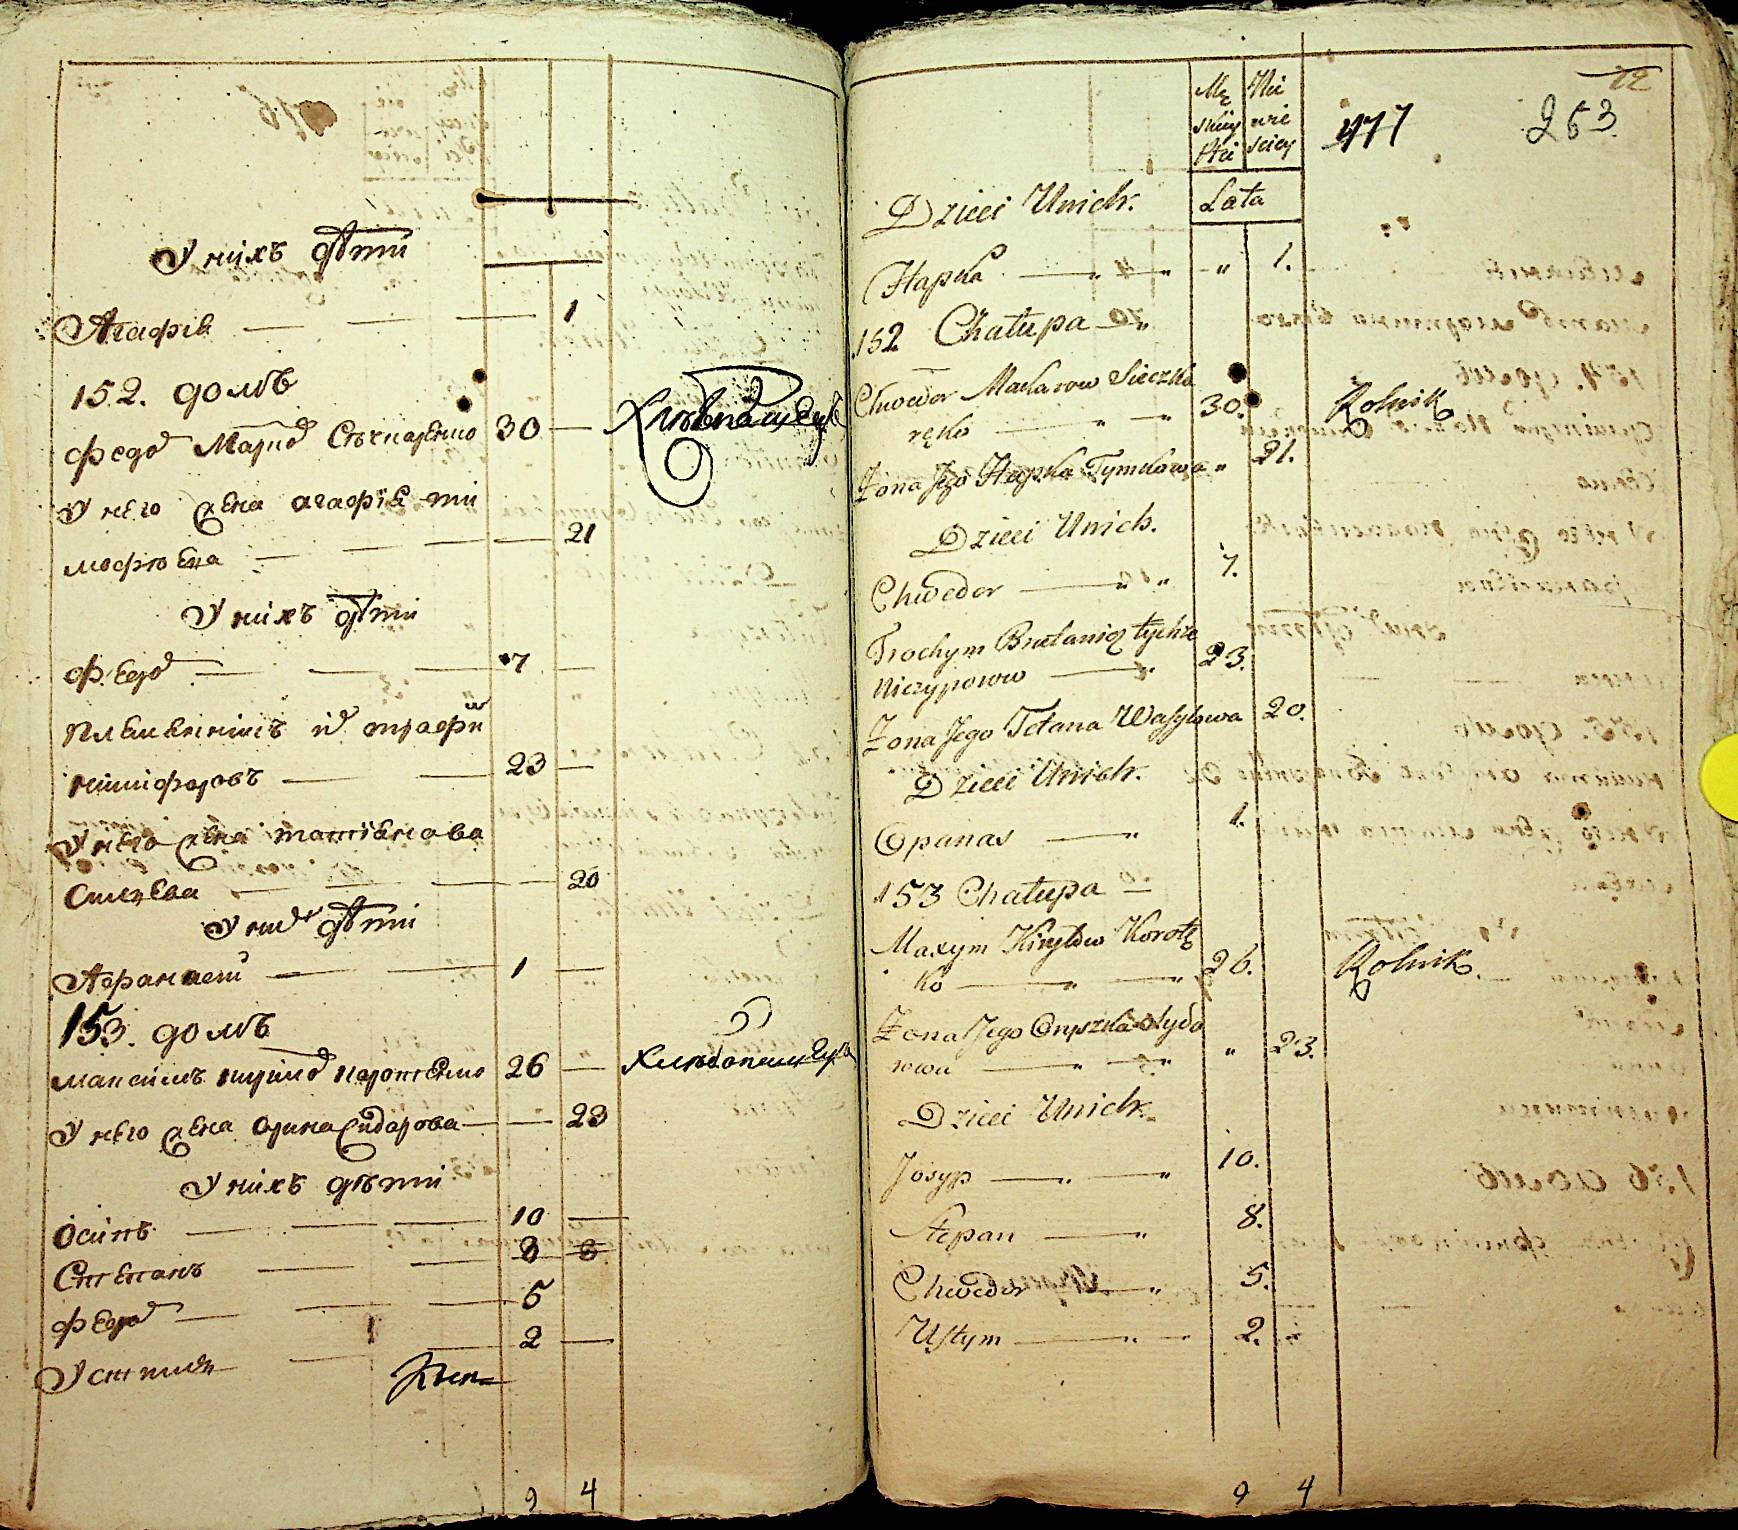 У нихъ дѣти
Агафія — — — 1
152. домъ
Федоръ Макаровъ Сѣчкаренко 30 — Хлѣбопашецъ
У него жена Агафія Ти
мофѣева — — — 21
У нихъ дѣти
Федоръ — — — 7 —
Племенникъ ихъ Трофимъ
Никифоровъ — — 23 —
У него жена Татіяна Ва
силіева — — — 20
У нихъ дѣти
Афанасій — — 1 —
153. домъ
Максимъ Кириловъ Коротенко 26 — Хлѣбопашецъ
У него жена Орина Сидорова — — 23
У нихъ дѣти
Осипъ — — — 10 —
Степанъ — — 8 8
Федоръ — — — 5
Устимъ — — 2 —
9 4
22
Mę Nie
skiey wie
Płci sciey
177 253
Lata
Dzieci Unich.
Hapka — " — " " 1.
152 Chałupa
Chwedor Makarow Sieczka
ręko — " — " 30. Rolnik
Żona Jego Hapka Tymchowa " 21.
Dzieci Unich.
Chwedor — " " 7.
Trochym Bratanicz tychże
Niczyporow — " 23.
Żona Jego Tetana Wasylowa 20.
Dzieci Unich.
Opanas — " 1.
153 Chałupa
Maxym Kiryłow Korotę
ko — " — " 26. Rolnik.
Żona Jego Oryszka Sydo
rowa — " — " " 23.
Dzieci Unich.
Josyp — " — " 10.
Stepan — " 8.
Chwedor — " 5.
Ustym — " — 2. "
9 4